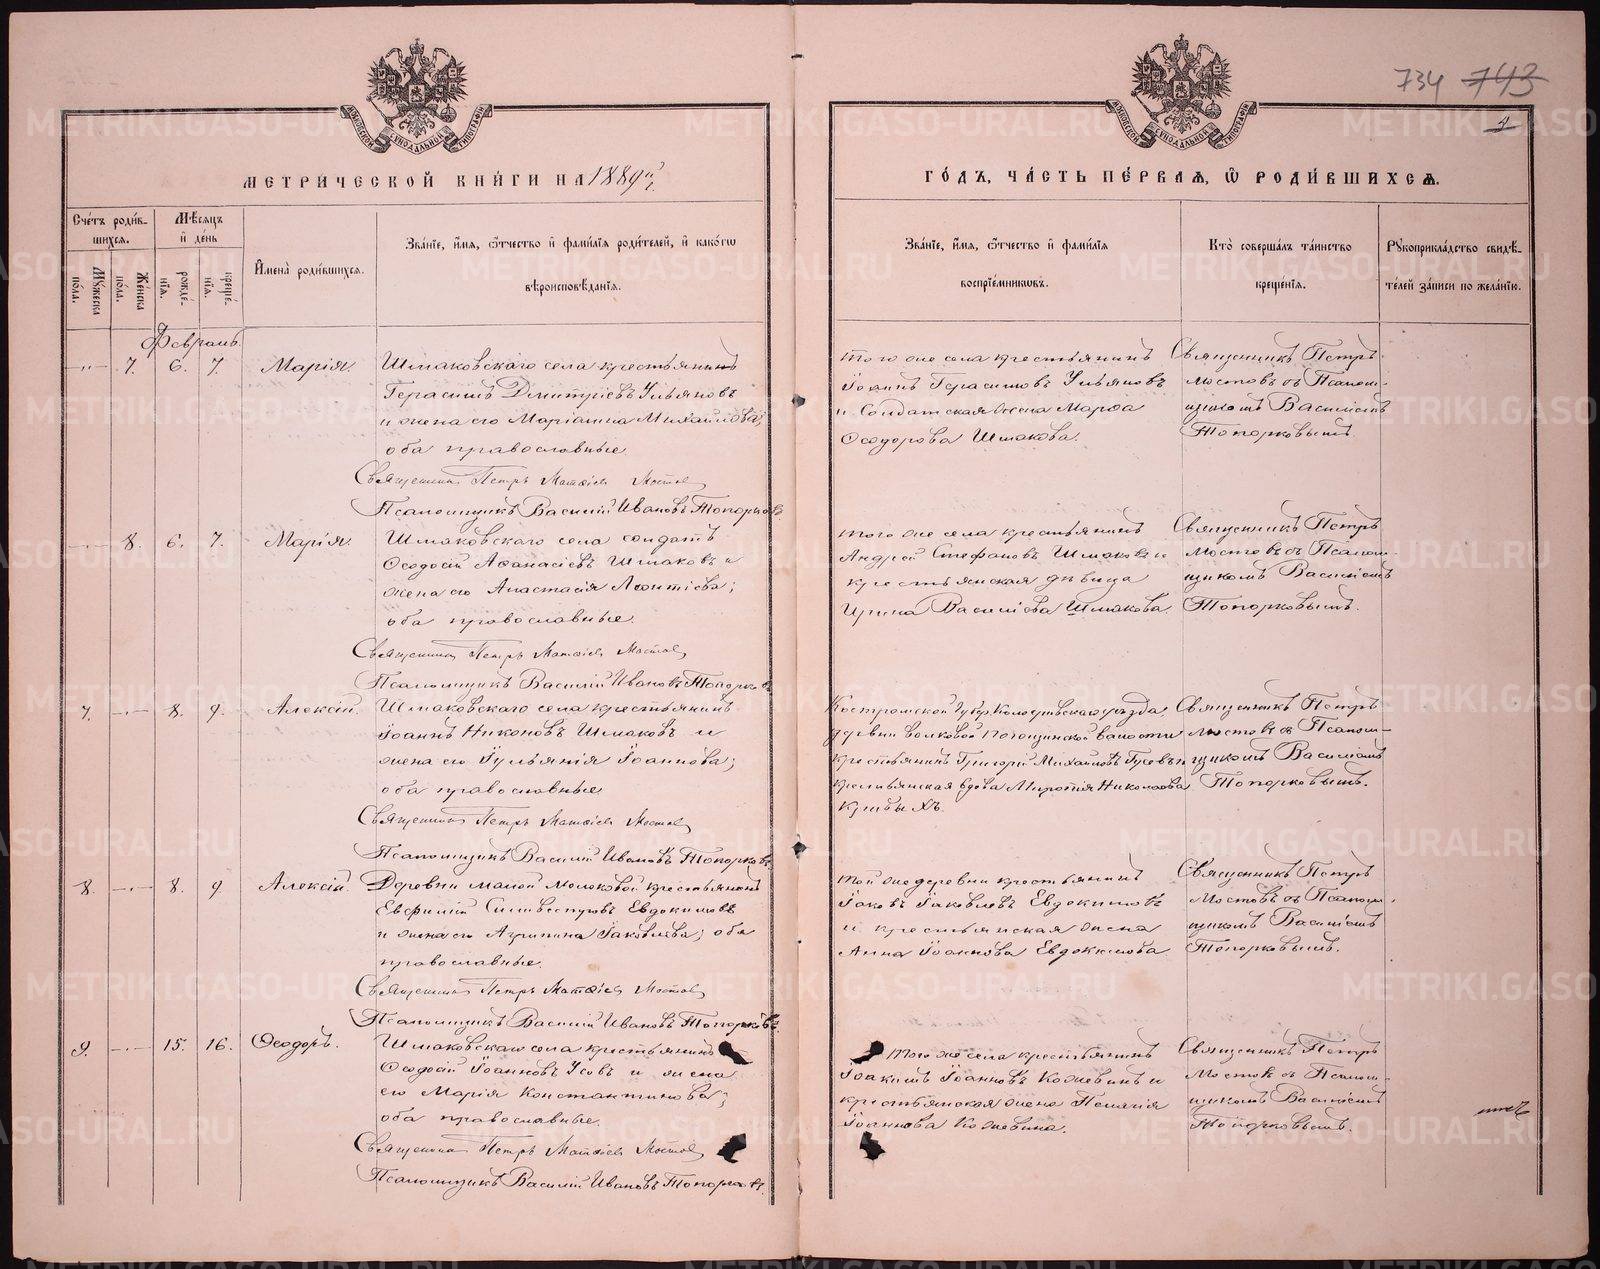 734 743
МОСКОВСКОЙ СѴНОДАЛЬНОЙ ТИПОГРАФІИ
МОСКОВСКОЙ СѴНОДАЛЬНОЙ ТИПОГРАФІИ
МЕТРИ́ЧЕСКОЙ КНИ́ГИ НА 1889й г.
ГО́ДЪ, ЧА́СТЬ ПЕ́РВАЯ, Ѡ҆ РОДИ́ВШИХСѦ.
Сче́тъ роди́в-
шихся.
Мѣ́сяцъ
и҆ де́нь
Му́жеска по́ла.
Же́нска по́ла.
рожде́-
нїя.
креще́-
нїя.
И҆мена̀ роди́вшихся.
Зва́нїе, и҆́мя, ѻ҆́тчество и҆ фами́лїя роди́телей, и҆ како́гѡ
вѣроисповѣ́данїя.
Зва́нїе, и҆́мя, ѻ҆́тчество и҆ фами́лїя
воспрїе́мникѡвъ.
Кто̀ соверша́лъ та́инство
креще́нїя.
Рꙋкоприкла́дство свидѣ́-
телей за́писи по жела́нїю.
Февраль
-"- 7. 6. 7. Марія.
Шмаковскаго села крестьянинъ
Герасимъ Дмитріевъ Ульяновъ
и жена его Маріанна Михайлова;
оба православные.
Священникъ Петръ Матѳіевъ Мостовъ
Псаломщикъ Василій Ивановъ Топорковъ
того же села крестьянинъ
Іоаннъ Герасимовъ Ульяновъ
и солдатская жена Марѳа
Ѳеодорова Шмакова.
Священникъ Петръ
Мостовъ съ Псалом-
щикомъ Василіемъ
Топорковымъ
-"- 8. 6. 7. Марія.
Шмаковскаго села солдатъ
Ѳеодосій Аѳанасіевъ Шмаковъ и
жена его Анастасія Леонтіева;
оба православные.
Священникъ Петръ Матѳіевъ Мостовъ
Псаломщикъ Василій Ивановъ Топорковъ
того же села крестьянинъ
Андрей Стефановъ Шмаковъ и
крестьянская дѣвица
Ирина Василіева Шмакова.
Священникъ Петръ
Мостовъ съ Псалом-
щикомъ Василіемъ
Топорковымъ.
7. -"- 8. 9. Алексій.
Шмаковскаго села крестьянинъ
Іоаннъ Никоновъ Шмаковъ и
жена его Іульянія Іоаннова;
оба православные
Священникъ Петръ Матѳіевъ Мостовъ
Псаломщикъ Василій Ивановъ Топорковъ
Костромской губр. уѣзда
деревни волости
крестьянинъ Григорій Михайловъ Гусевъ и
крестьянская вдова Николаева
Кривыхъ.
Священникъ Петръ
Мостовъ съ Псалом-
щикомъ Василіемъ
Топорковымъ.
8. -"- 8. 9. Алексій.
Деревни Малой Молоковой крестьянинъ
Евфимій Сильвестровъ Евдокимовъ
и жена его Агрипина Іаковлева; оба
православные.
Священникъ Петръ Матѳіевъ Мостовъ
Псаломщикъ Василій Ивановъ Топорковъ
той же деревни крестьянинъ
Іаковъ Іаковлевъ Евдокимовъ
и крестьянская жена
Анна Іоаннова Евдокимова.
Священникъ Петръ
Мостовъ съ Псалом-
щикомъ Василіемъ
Топорковымъ.
9. -"- 15. 16. Ѳеодоръ.
Шмаковскаго села крестьянинъ
Ѳеодосій Іоанновъ Усовъ и жена
его Марія Константинова;
оба православные.
Священникъ Петръ Матѳіевъ Мостовъ
Псаломщикъ Василій Ивановъ Топорковъ.
того же села крестьянинъ
Іоакимъ Іоанновъ Кожевинъ и
крестьянская жена Пелагія
Іоаннова Кожевина.
Священникъ Петръ
Мостовъ съ Псалом-
щикомъ Василіемъ
Топорковымъ.
METRIKI.GASO-URAL.RU